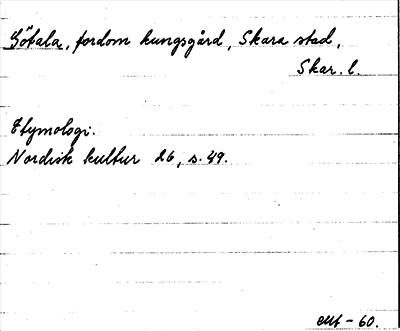 Götala, fordom kungsgård, Skara stad,
Skar. l.
Etymologi.
Nordisk kultur 26, s. 49.
- 60.